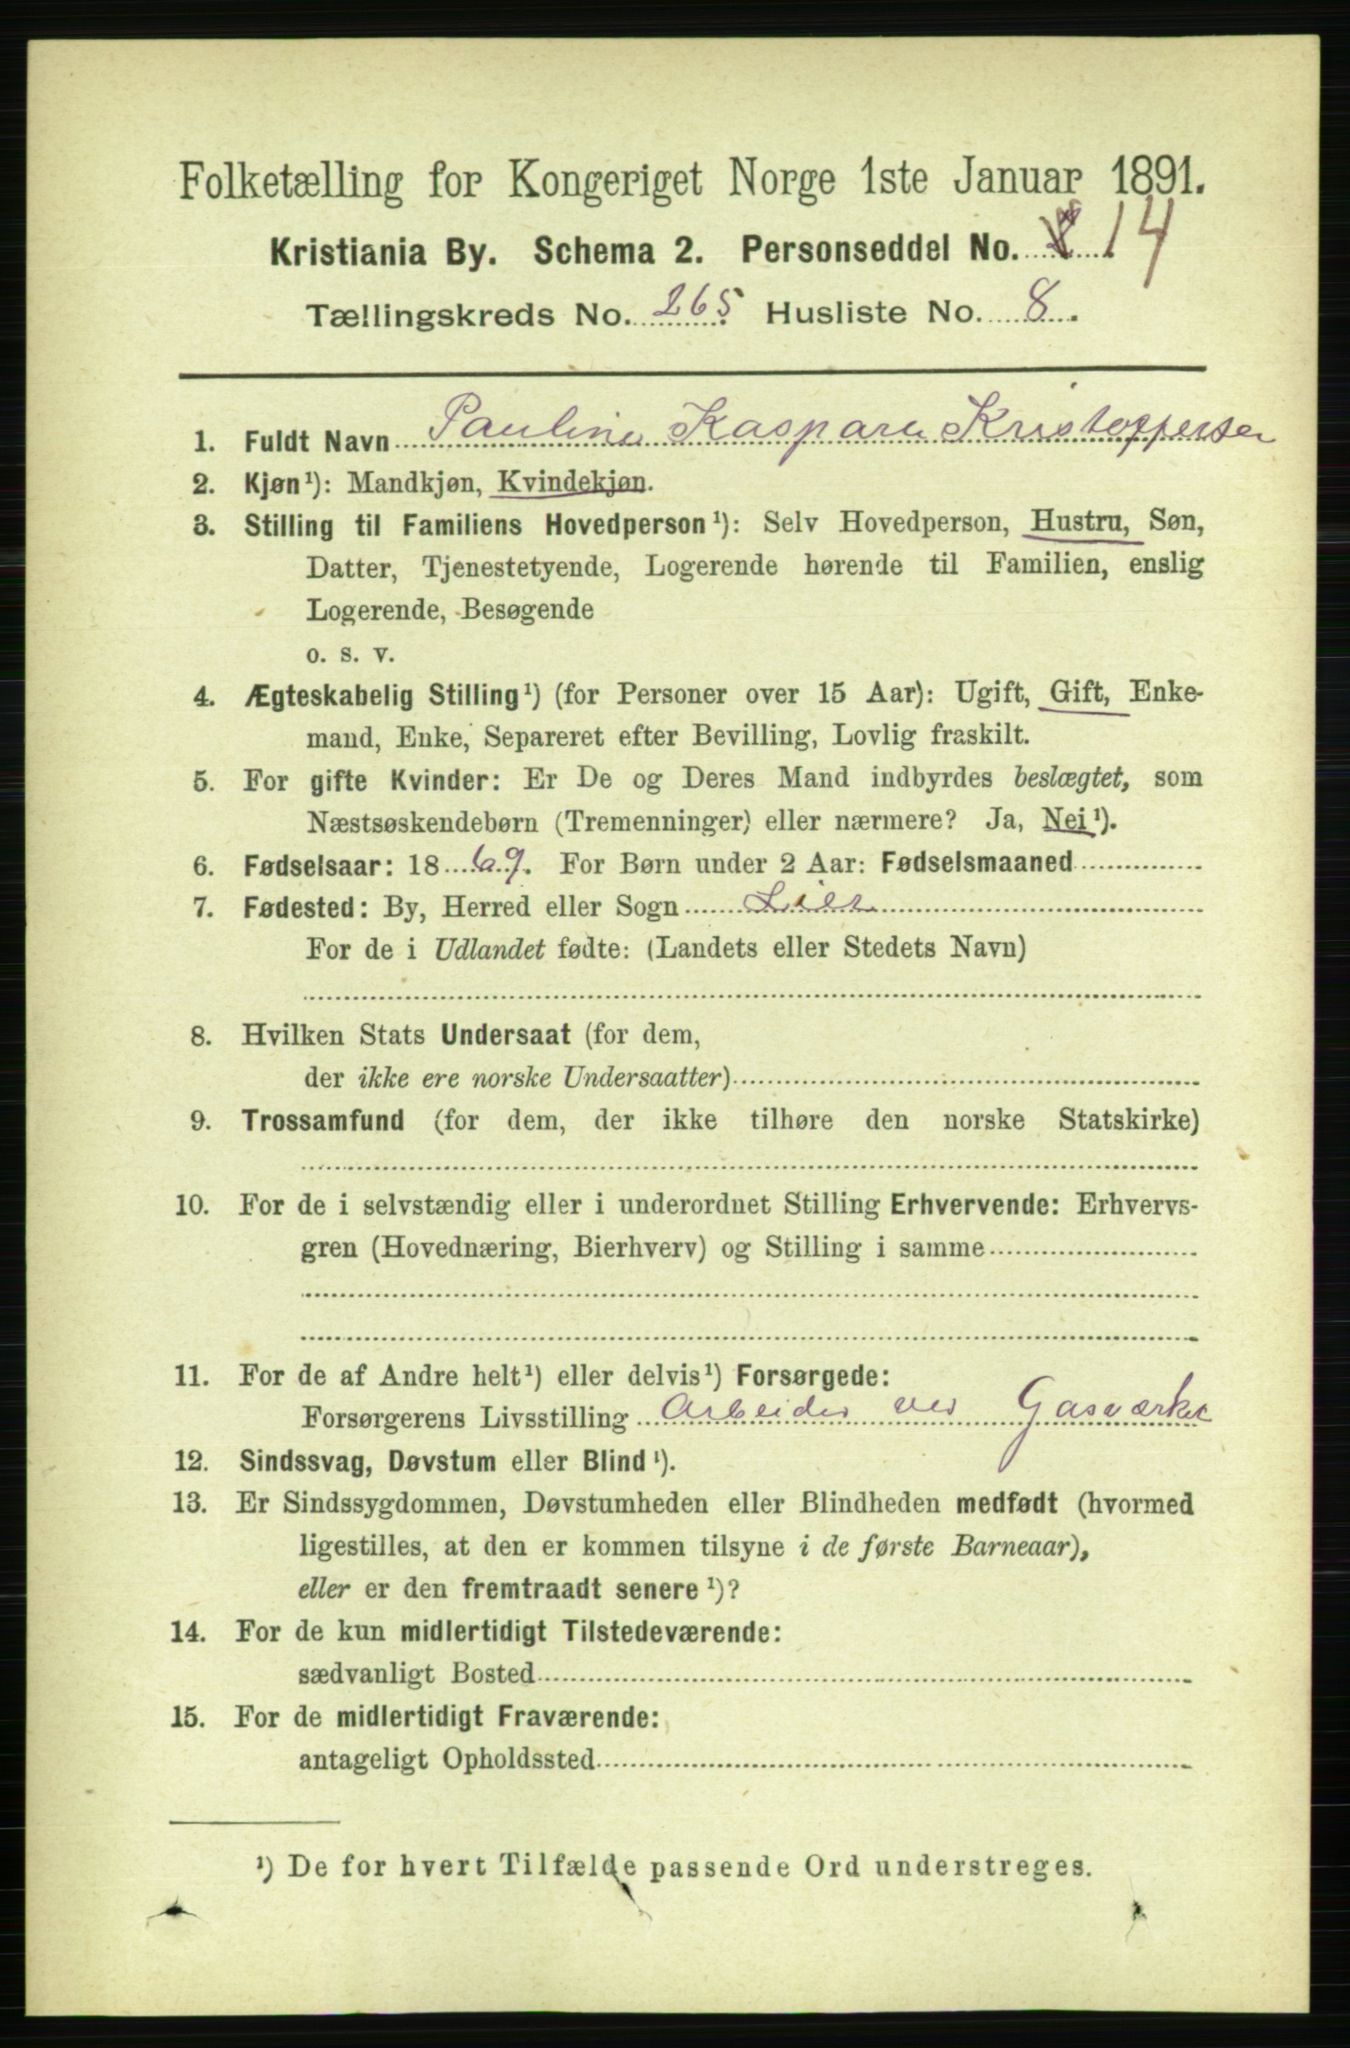 Folketælling for Kongeriget Norge 1ste Januar 1891.
Kristiania By. Schema 2. Personseddel No. 14
Tællingskreds No. 265 Husliste No. 8.
1. Fuldt Navn Pauline Kaspara Kristoffersen
2. Kjøn¹): Mandkjøn, Kvindekjøn.
3. Stilling til Familiens Hovedperson¹): Selv Hovedperson, Hustru, Søn,
Datter, Tjenestetyende, Logerende hørende til Familien, enslig
Logerende, Besøgende
o. s. v.
4. Ægteskabelig Stilling¹) (for Personer over 15 Aar): Ugift, Gift, Enke-
mand, Enke, Separeret efter Bevilling, Lovlig fraskilt.
5. For gifte Kvinder: Er De og Deres Mand indbyrdes beslægtet, som
Næstsøskendebørn (Tremenninger) eller nærmere? Ja, Nei¹).
6. Fødselsaar: 1869. For Børn under 2 Aar: Fødselsmaaned
7. Fødested: By, Herred eller Sogn Lier
For de i Udlandet fødte: (Landets eller Stedets Navn)
8. Hvilken Stats Undersaat (for dem,
der ikke ere norske Undersaatter)
9. Trossamfund (for dem, der ikke tilhøre den norske Statskirke)
10. For de i selvstændig eller i underordnet Stilling Erhvervende: Erhvervs-
gren (Hovednæring, Bierhverv) og Stilling i samme
11. For de af Andre helt¹) eller delvis¹) Forsørgede:
Forsørgerens Livsstilling Arbeider ved Gasværket
12. Sindssvag, Døvstum eller Blind¹).
13. Er Sindssygdommen, Døvstumheden eller Blindheden medfødt (hvormed
ligestilles, at den er kommen tilsyne i de første Barneaar),
eller er den fremtraadt senere¹)?
14. For de kun midlertidigt Tilstedeværende:
sædvanligt Bosted
15. For de midlertidigt Fraværende:
antageligt Opholdssted
¹) De for hvert Tilfælde passende Ord understreges.